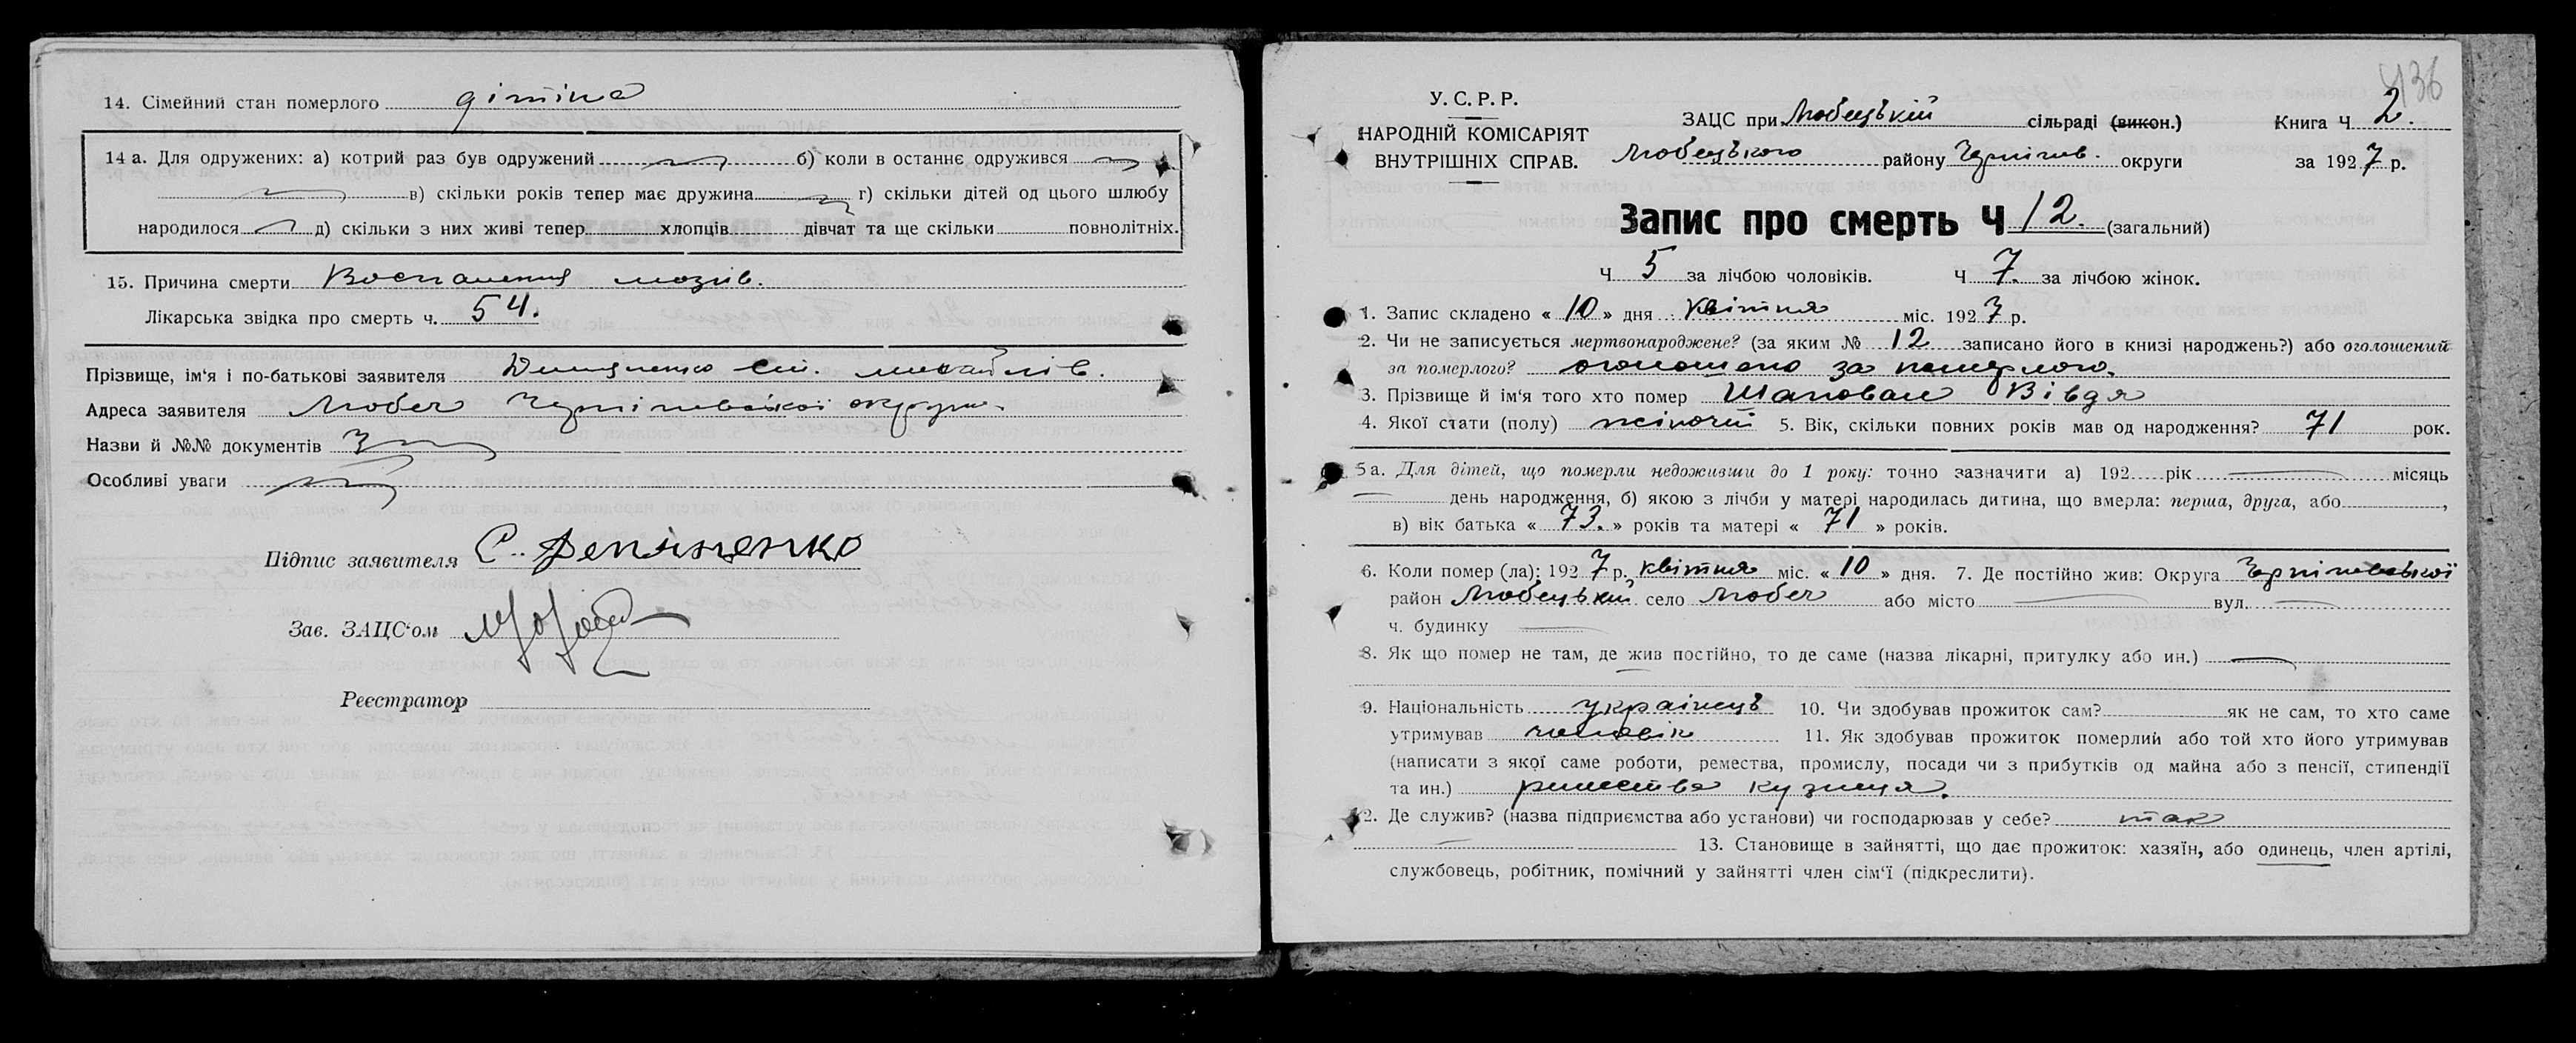 14. Сімейний стан померлого дітіна
14 а. Для одружених: а) котрий раз був одружений б) коли в останнє одружився
в) скільки років тепер має дружина г) скільки дітей од цього шлюбу
народилося д) скільки з них живі тепер хлопців дівчат та ще скільки повнолітніх.
15. Причина смерти Воспаления мозгів.
Лікарська звідка про смерть ч. 54.
Прізвище, ім'я і по-батькові заявителя
Адреса заявителя Любеч Чернігівської округи.
Назви й №№ документів
Особливі уваги
Підпис заявителя С.
Зав. ЗАЦС'ом
Реєстратор
436
У. С. Р. Р.
НАРОДНІЙ КОМІСАРІЯТ
ВНУТРІШНІХ СПРАВ.
ЗАЦС при Любецькій сільраді (викон.) Книга Ч 2.
Любецького району Чернігів. округи за 1927 р.
Запис про смерть Ч 12. (загальний)
Ч 5 за лічбою чоловіків. Ч 7. за лічбою жінок.
1. Запис складено « 10 » дня квітня міс. 1927 р.
2. Чи не записується мертвонароджене? (за яким № 12 записано його в книзі народжень?) або оголошений
за померлого? оголошено за померлого.
3. Прізвище й ім'я того хто помер Шаповал Вівдя
4. Якої стати (полу) жіночий 5. Вік, скільки повних років мав од народження? 71 рок.
5 а. Для дітей, що померли недоживши до 1 року: точно зазначити а) 192 рік місяць
день народження, б) якою з лічби у матері народилась дитина, що вмерла: перша, друга, або ,
в) вік батька « 73. » років та матері « 71 » років.
6. Коли помер (ла): 1927 р. квітня міс. « 10 » дня. 7. Де постійно жив: Округа Чернігівської
район Любецький село Любеч або місто вул.
ч. будинку
8. Як що помер не там, де жив постійно, то де саме (назва лікарні, притулку або ин.)
9. Національність українець 10. Чи здобував прожиток сам? як не сам, то хто саме
утримував чоловік 11. Як здобував прожиток померлий або той хто його утримував
(написати з якої саме роботи, ремества, промислу, посади чи з прибутків од майна або з пенсії, стипендії
та ин.) ремества кузнеця.
12. Де служив? (назва підприємства або установи) чи господарюзав у себе? так
13. Становище в зайнятті, що дає прожиток: хазяїн, або одинець, член артілі,
службовець, робітник, помічний у зайнятті член сім'ї (підкреслити).